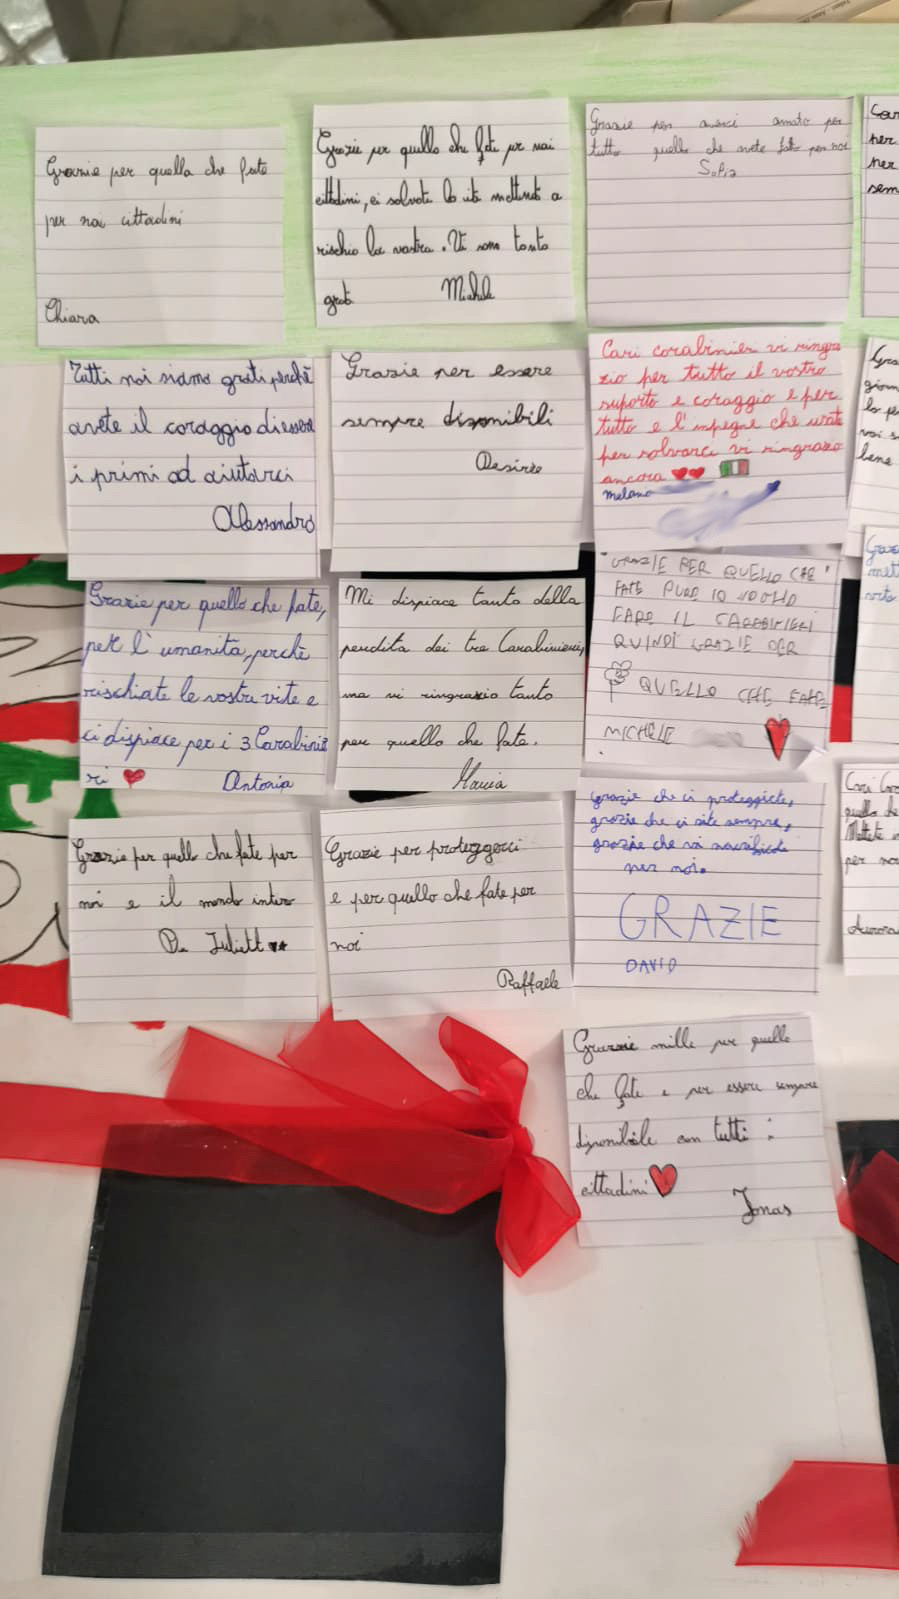 Grazie per quello che fate
per noi cittadini
Chiara
Grazie per quello che fate per noi
cittadini, ci salvate la vita mettendo a
rischio la vostra. Vi sono tanto
grat
Michele
Grazie per averci amato per
tutto quello che avete fatto per noi
Sofia
Car
per
per
sem
Tutti noi siamo grati perchè
avete il coraggio di essere
i primi ad aiutarci
Alessandro
Grazie per essere
sempre disponibili
Desirèe
Cari carabinieri vi ringra
zio per tutto il vostro
suporto e coraggio e per
tutto e l'impegne che
per salvarci vi ringrazio
ancora
melano
Gra
giorn
lo pe
voi s
bene
Grazie per quello che fate,
per l'umanita, perchè
rischiate le vostre vite e
ci dispiace per i 3 Carabinie
ri
Antonia
Mi dispiace tanto della
perdita dei tre Carabinieri,
ma vi ringrazio tanto
per quello che fate.
GRAZIE PER QUELLO CHE
FATE PURE IO VOGLIO
FARE IL CARABINIERI
QUINDI GRAZIE PER
QUELLO CHE FATE
MICHELE
Graz
mett
Grazie per quello che fate per
noi e il mondo intero
Da Juliett
Grazie per proteggerci
e per quello che fate per
noi
Raffaele
Grazie che ci proteggiete,
grazie che ci siete sempre,
grazie che vi sacrificate
per noi.
GRAZIE
DAVID
Cari Car
quello che
Mettete
per no
Aurora
Grazie mille per quello
che fate e per essere sempre
disponibile con tutti i
cittadini
Jonas